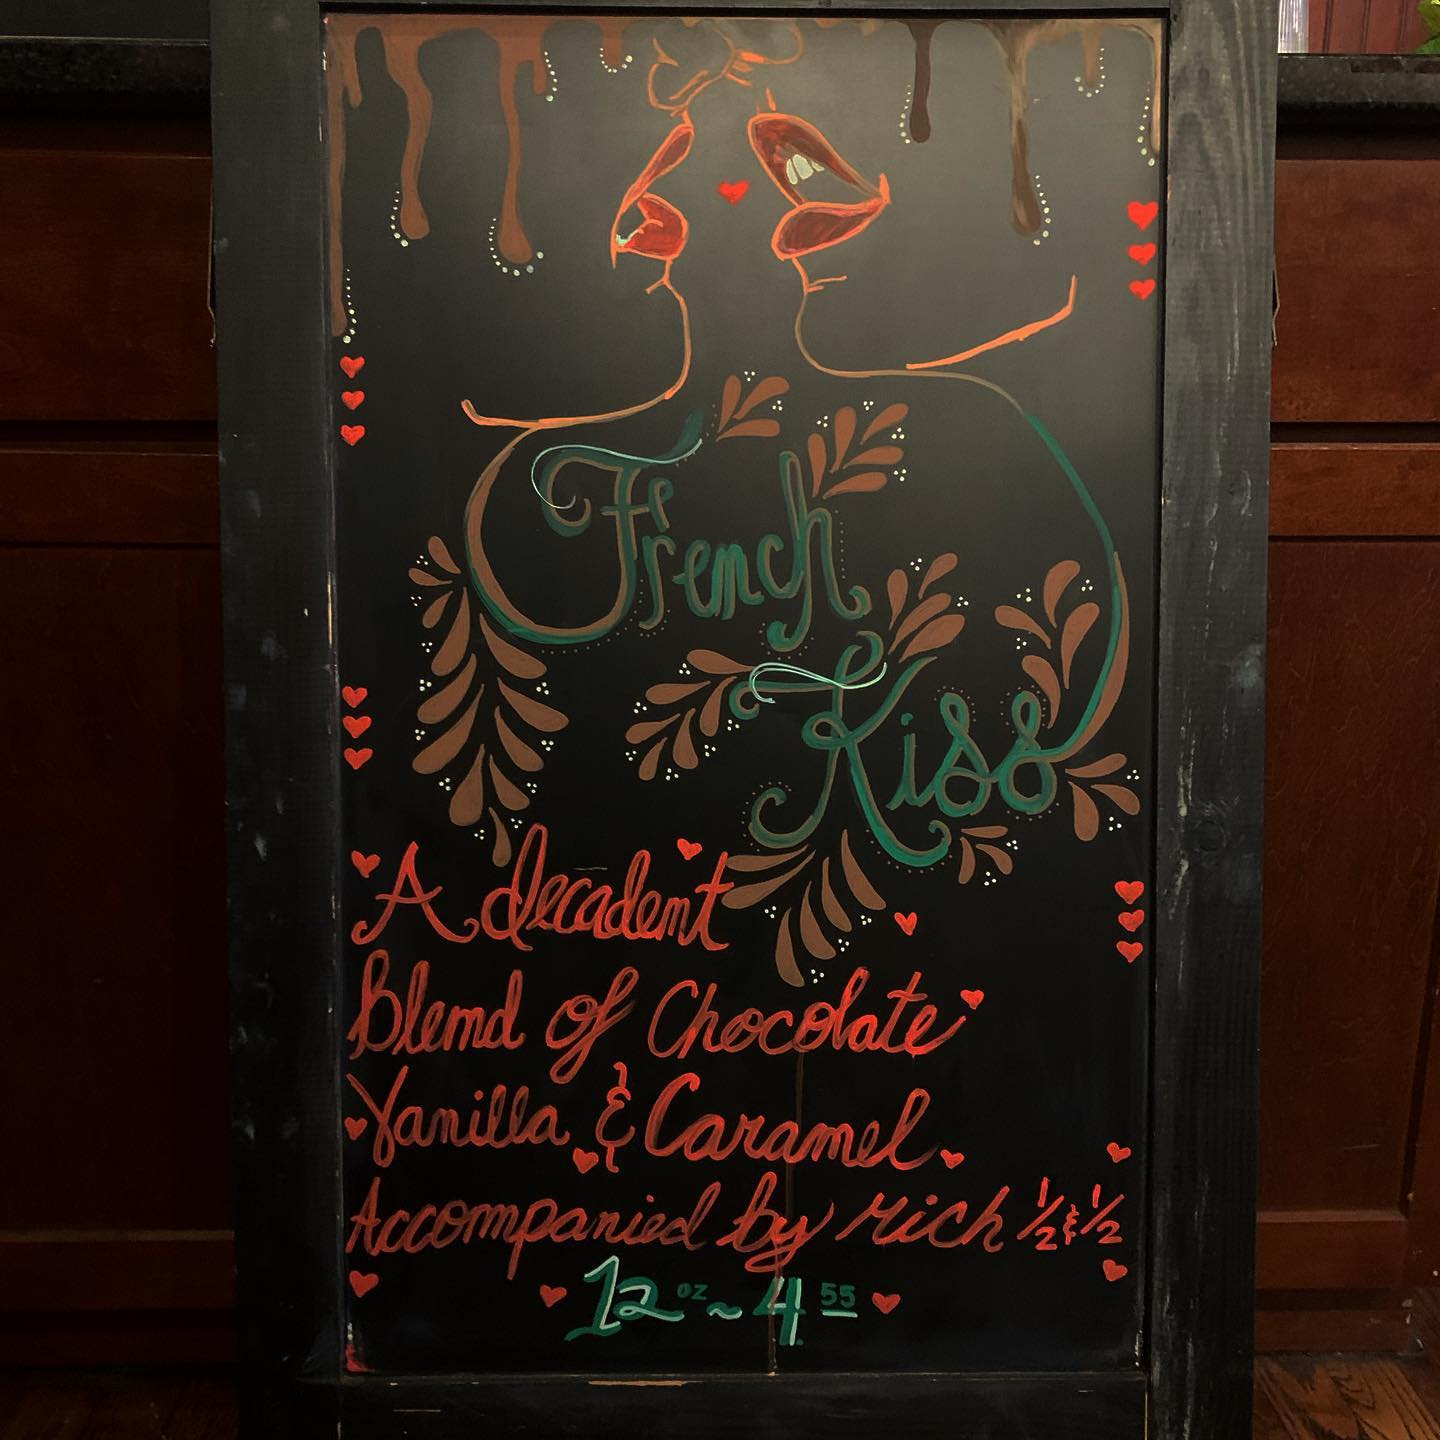 French
Kiss
A decadent
Blend of Chocolate
Vanilla & Caramel
Accompanied by rich ½ & ½
12 oz ~ 4 55